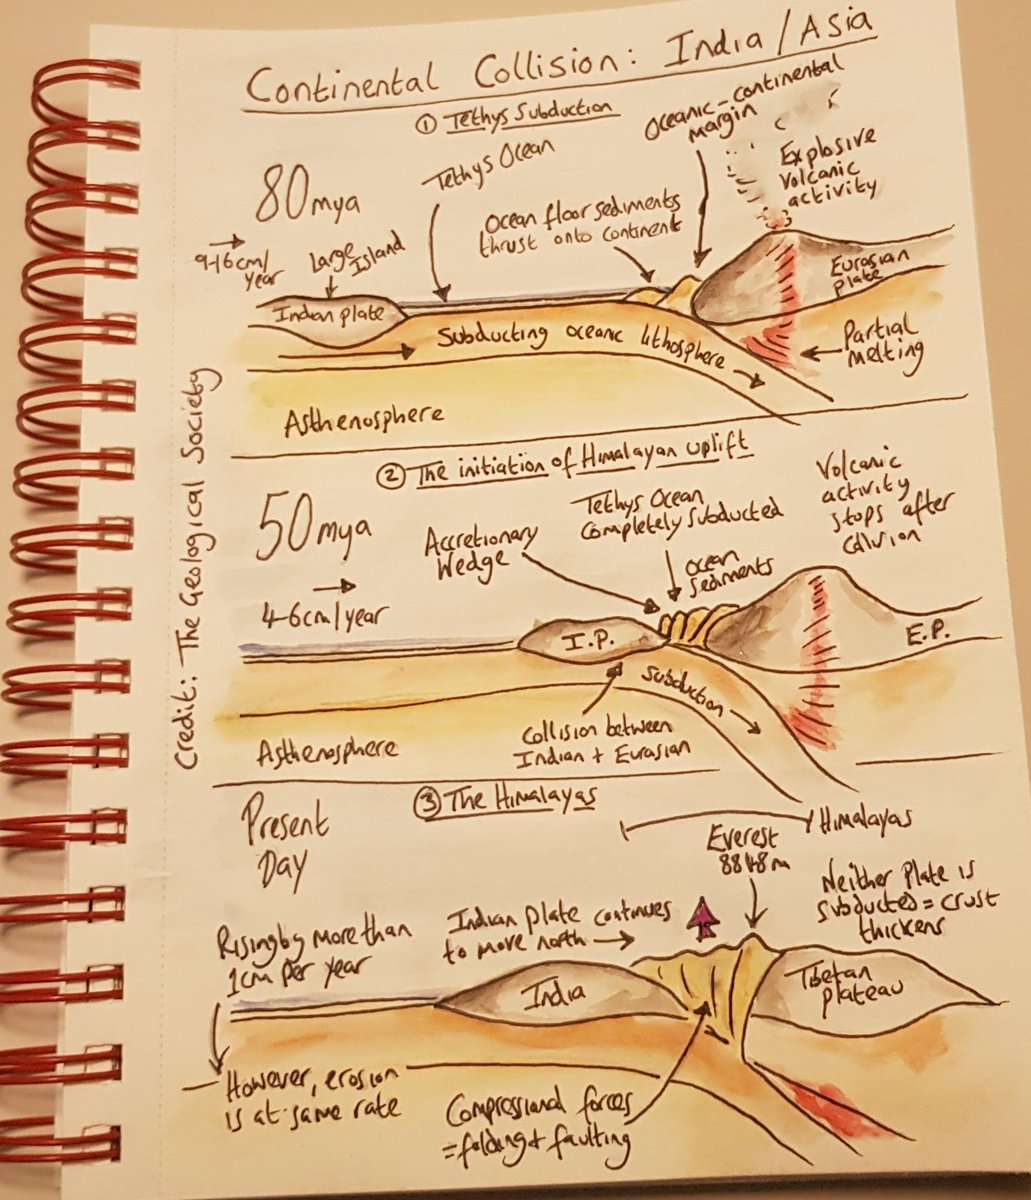 Continental Collision: India/Asia
① Tethys Subduction
80mya
Tethys Ocean
Oceanic-continental
margin
Explosive
volcanic
activity
Ocean floor sediments
thrust onto continent
9-16cm/
year
Large
Island
Indian plate
Eurasian
plate
Subducting oceanic lithosphere
Partial
melting
Asthenosphere
Credit: The Geological Society
② The initiation of Himalayan uplift
50mya
4-6cm/year
Accretionary
Wedge
Tethys Ocean
Completely subducted
Ocean
Sediments
Volcanic
activity
stops after
I.P.
E.P.
Subduction
Collision between
Indian + Eurasian
Asthenosphere
③ The Himalayas
Present
Day
Himalayas
Everest
8848m
Neither plate is
subducted = crust
thickens
Rising by more than
1cm per year
Indian plate continues
to move north
India
Tibetan
plateau
However, erosion
is at same rate
Compressional forces
=folding + faulting